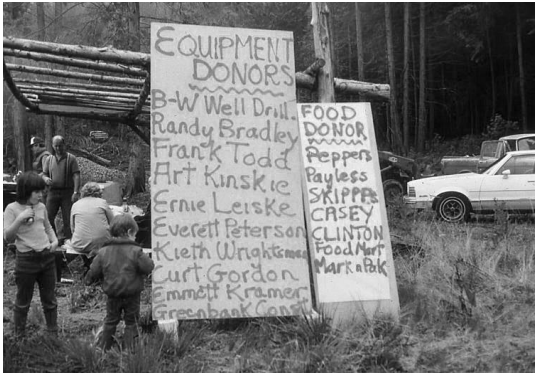 EQUIPMENT
DONORS
B-W Well Drill.
Randy Bradley
Frank Todd
Art Kinskie
Ernie Leiske
Everett Peterson
Kieth Wrightsman
Curt Gordon
Emmett Kramer
Greenbank Const
FOOD
DONOR
Peppers
Payless
SKIPPPs
CASEY
CLINTON
Food Mart
Mark n Pak